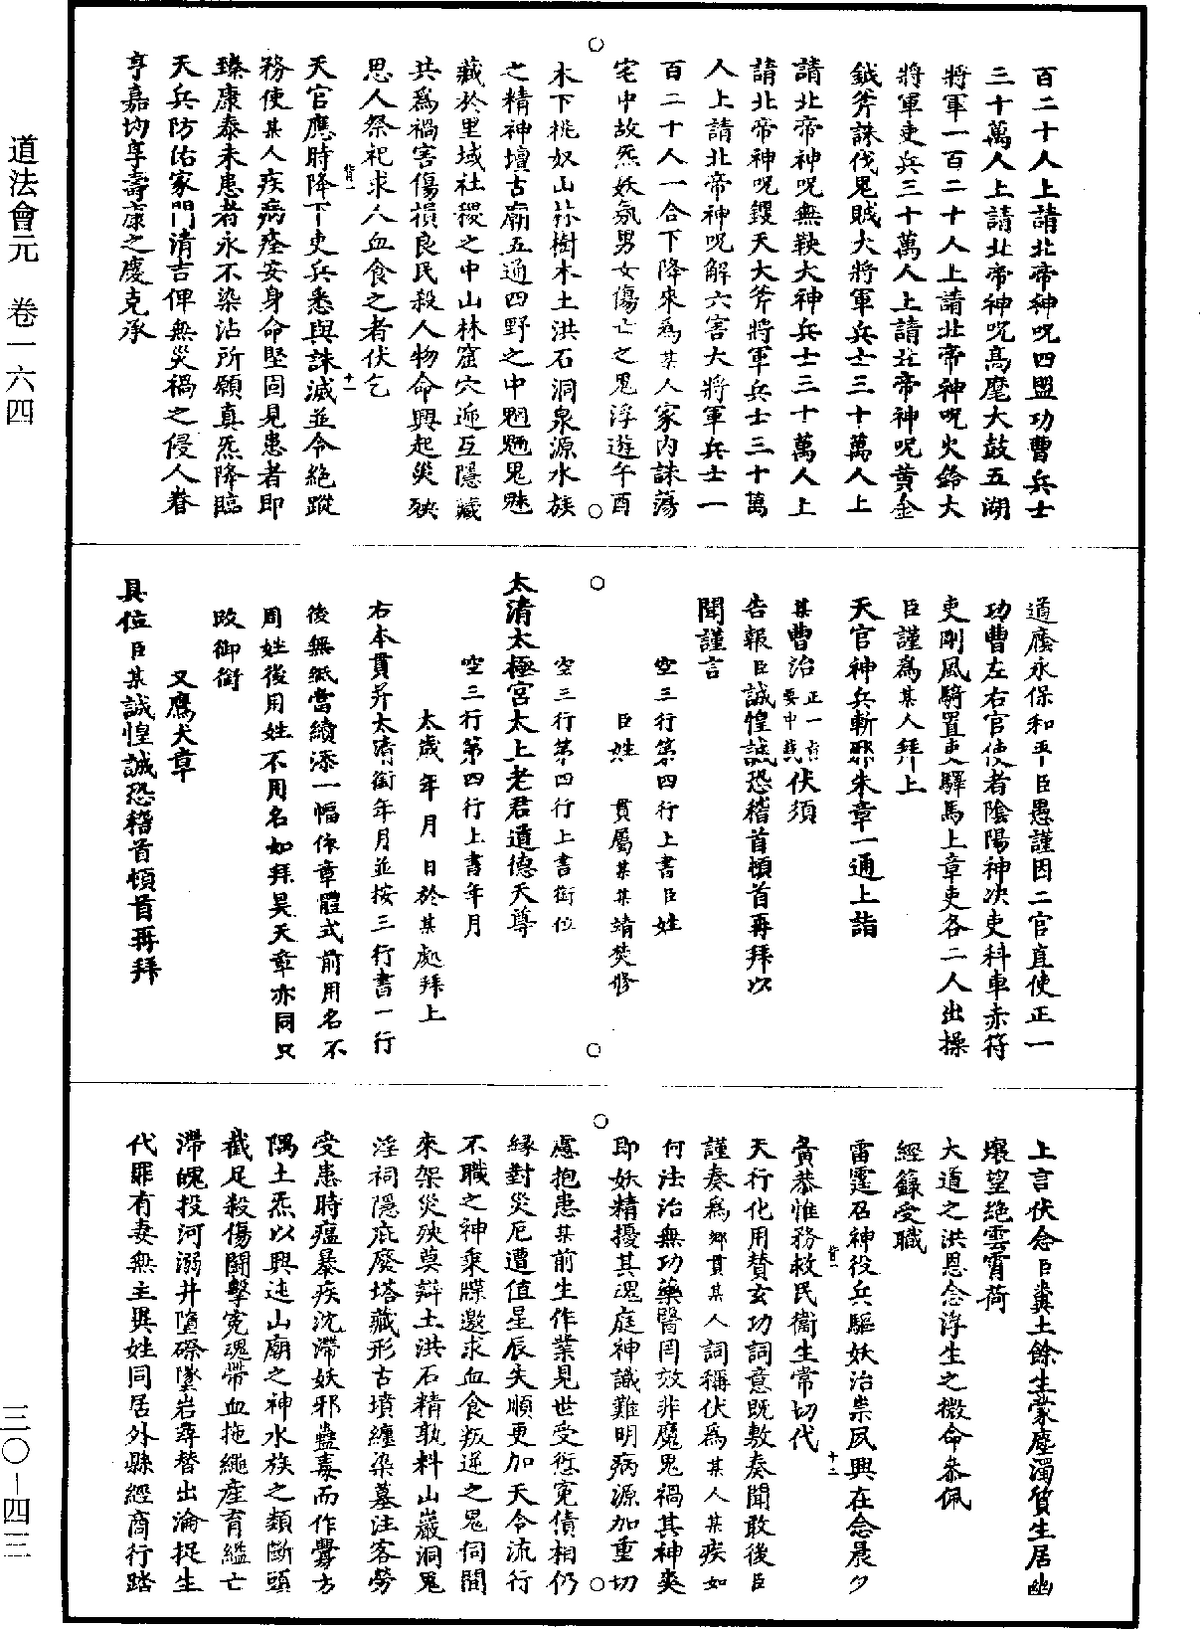 道法會元　卷一六四
三〇－四三
百二十人上請北帝神呪四盟功曹兵士
三十萬人上請北帝神呪高麾大鼓五湖
將軍一百二十人上請北帝神呪火鈴大
將軍吏兵三十萬人上請北帝神呪黃金
鉞斧誅伐鬼賊大將軍兵士三十萬人上
請北帝神呪無鞅大神兵士三十萬人上
請北帝神呪鑊天大斧將軍兵士三十萬
人上請北帝神呪解六害大將軍兵士一
百二十人一合下降來為某人家內誅蕩
宅中故炁妖氛男女傷亡之鬼浮遊午酉
木下桃奴山林樹木土洪石洞泉源水族
之精神壇古廟五通四野之中魍魎鬼魅
藏於里域社稷之中山林窟穴遞互隱藏
共為禍害傷損良民殺人物命興起災殃
思人祭祀求人血食之者伏乞
天官應時降下吏兵悉與誅滅並令絕蹤
務使某人疾病痊安身命堅固見患者即
臻康泰未患者永不染沾所願真炁降臨
天兵防佑家門清吉俾無災禍之侵人眷
亨嘉均享壽康之慶克承
道廕永保和平臣愚謹因二官直使正一
功曹左右官使者陰陽神决吏科車赤符
吏剛風騎置吏驛馬上章吏各二人出操
臣謹為某人拜上
天官神兵斬邪朱章一通上詣
某曹治伏須
告報臣誠惶誠恐稽首頓首再拜以
聞謹言
空三行第四行上書臣姓
臣姓　貫屬某某靖焚修
空三行第四行上書銜位
太清太極宮太上老君道德天尊
空三行第四行上書年月
太歲年月　日於某處拜上
右本貫并太清銜年月並按三行書一行
後無紙當續添一幅依章體式前用名不
用姓後用姓不用名如拜昊天章亦同只
改御銜
又鷹犬章
具位臣某誠惶誠恐稽首頓首再拜
上言伏念臣糞土餘生蒙塵濁質生居幽
壤望絕雲霄荷
大道之洪恩念浮生之微命忝佩
經籙受職
雷霆召神役兵驅妖治祟夙興在念晨夕
夤恭惟務救民衞生常切代
天行化用贊玄功詞意既敷奏聞敢後臣
謹奏為鄉貫某人詞稱伏為某人某疾如
何法治無功藥醫罔效非魔鬼禍其神爽
即妖精擾其魂庭神識難明病源加重切
慮抱患某前生作業見世受愆寃債相仍
緣對災厄遭值星辰失順更加天令流行
不職之神乘牒邀求血食叛逆之鬼伺間
來架災殃莫辯土洪石精孰料山巖洞鬼
淫祠隱庇廢塔藏形古墳纏染墓注客勞
受患時瘟暴疾沈滯妖邪蠱毒而作釁方
隅土炁以興迍山廟之神水族之類斷頭
截足殺傷鬪擊寃魂帶血拖繩產育縊亡
滯魄投河溺井墮磔墜岩尋替出淪捉生
代罪有妻無主異姓同居外縣經商行踏